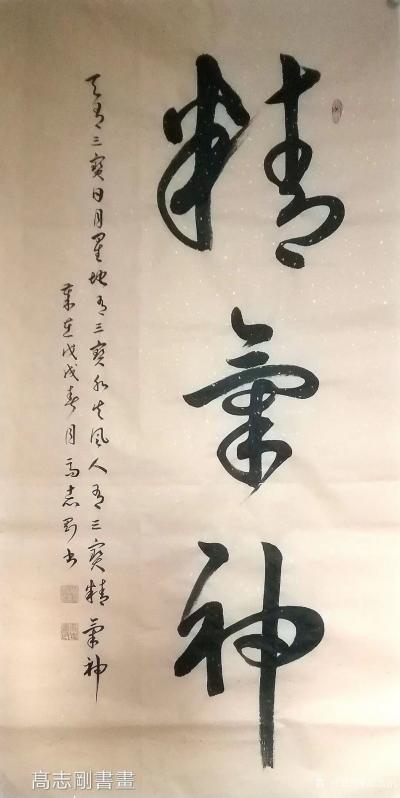 精氣神
天有三寳日月星地有三寳水火風人有三寳精氣神
歲在戊戌春月高志剛書
高志剛書畫